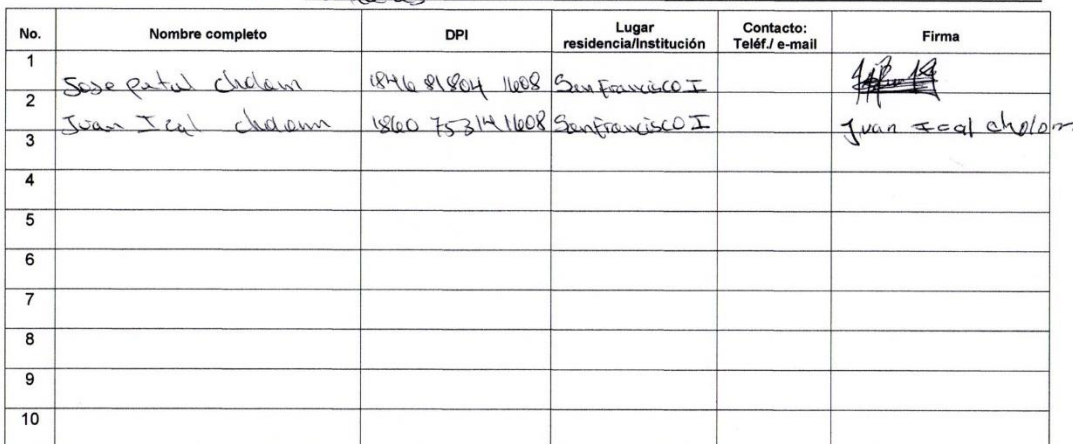 No. Nombre completo DPI Lugar residencia/Institución Contacto: Teléf./ e-mail Firma
1 Jose putul cholom 1846 81804 1608 San Francisco I
2 Juan Ical cholom 1860 75314 1608 San Francisco I Juan Ical cholom
3
4
5
6
7
8
9
10